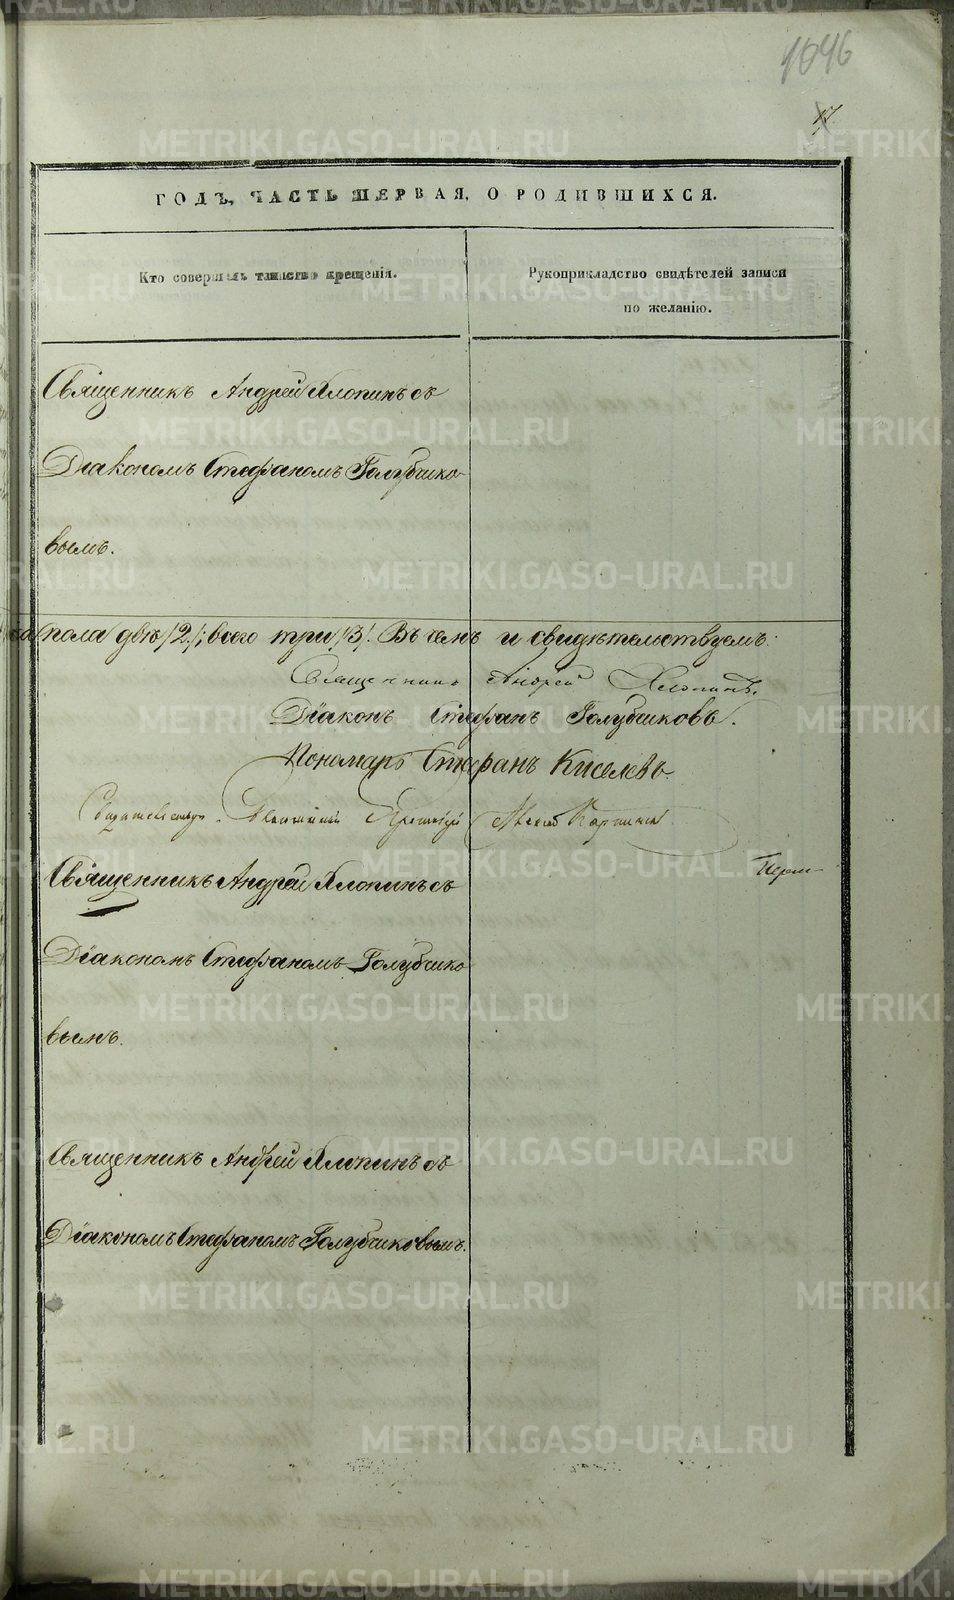 1046
17
ГОДЪ, ЧАСТЬ ПЕРВАЯ, О РОДИВШИХСЯ.
Кто совершалъ таинство крещенія.
Рукоприкладство свидѣтелей записи
по желанію.
Священникъ Андрей Хлопинъ съ
Діакономъ Стефаномъ Голубчико-
вымъ.
пола двѣ /2/; всего три /3/. Въ чемъ и свидѣтельствуемъ:
Священникъ Андрей Хлопинъ.
Діаконъ Стефанъ Голубчиковъ.
Пономарь Стефанъ Киселевъ
Священникъ Андрей Хлопинъ съ
Діакономъ Стефаномъ Голубчико
вымъ.
Священникъ Андрей Хлопинъ съ
Діакономъ Стефаномъ Голубчиковымъ.
METRIKI.GASO-URAL.RU